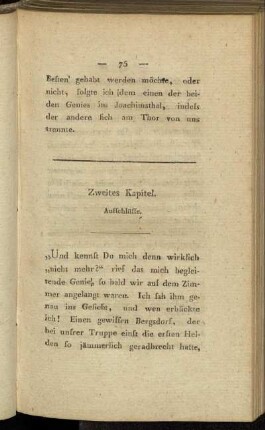 — 75 —
Besten' gehabt werden möchte, oder
nicht, folgte ich dem einen der bei-
den Genies im Joachimsthal, indess
der andere sich am Thor von uns
trennte.
Zweites Kapitel.
Aufschlüsse.
„Und kennst Du mich denn wirklich
„nicht mehr?“ rief das mich beglei-
tende Genie, so bald wir auf dem Zim-
mer angelangt waren. Ich sah ihm ge-
nau ins Gesicht, und wen erblickte
ich! Einen gewissen Bergsdorf, der
bei unsrer Truppe einst die ersten Hel-
den so jämmerlich geradbrecht hatte,